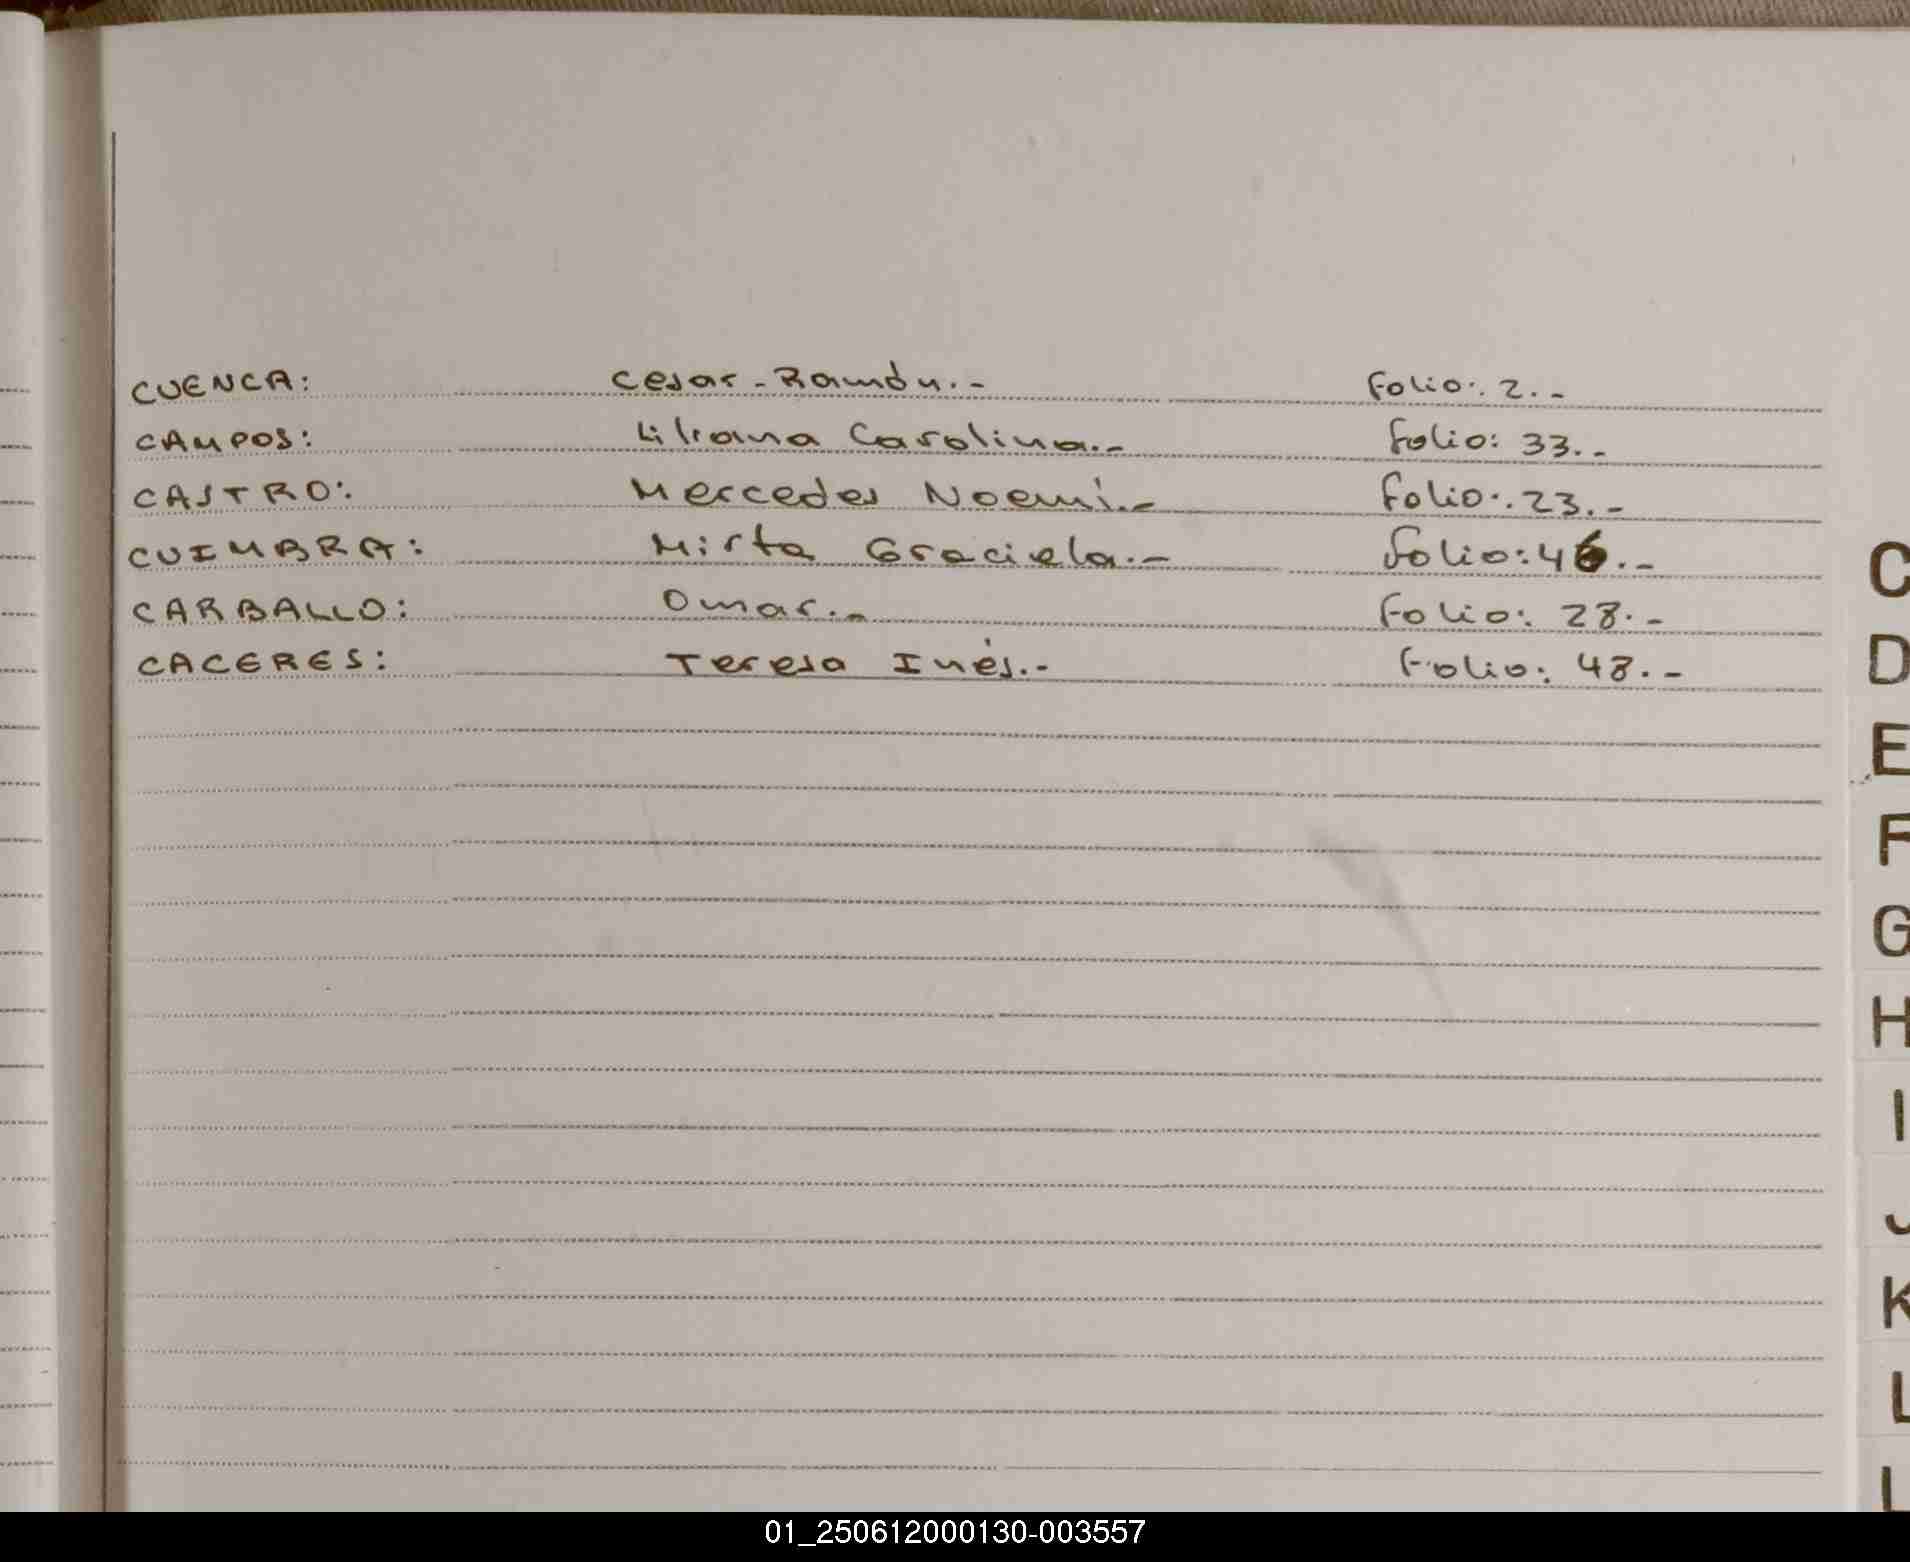 CUENCA: Cesar-Ramón.- Folio: 2.-
CAMPOS: Liliana Carolina.- Folio: 33.-
CASTRO: Mercedes Noemí.- Folio: 23.-
CUIMBRA: Mirta Graciela.- Folio: 46.-
CARBALLO: Omar.- Folio: 28.-
CACERES: Teresa Inés.- Folio: 48.-
C
D
E
F
G
H
I
J
K
L
L
01_250612000130-003557